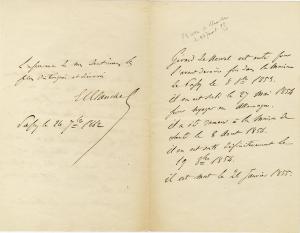 l'expression de mes sentiments les
plus distingués et dévoués
E Blanche
Passy le 24 7bre 1862
Gérard de Nerval est entré pour
l'avant dernière fois dans la Maison
de Passy le 8 8bre 1853.
il en est sorti le 27 mai 1854
pour voyager en Allemagne.
il est rentré à la Maison de
Santé le 8 Aout 1854.
il en est sorti définitivement le
19 8bre 1854.
il est mort le 26 Janvier 1855.